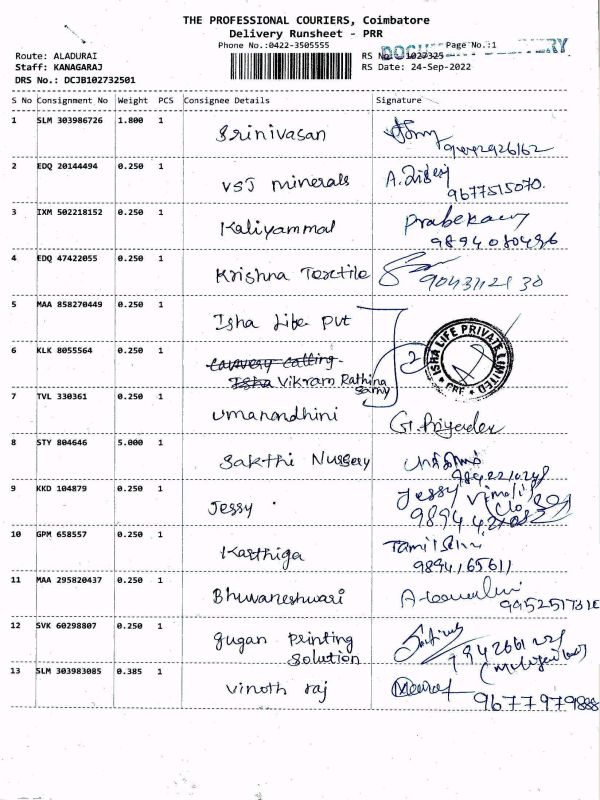 THE PROFESSIONAL COURIERS, Coimbatore
Delivery Runsheet - PRR
Phone No.:0422-3505555
Page No.:1
Route: ALADURAI
RS No.: 1027325
Staff: KANAGARAJ
RS Date: 24-Sep-2022
DRS No.: DCJB102732501
S No Consignment No Weight PCS Consignee Details Signature
1 SLM 303986726 1.800 1 Srinivasan
2 EDQ 20144494 0.250 1 VSJ minerals
9677515070.
3 IXM 502218152 0.250 1 Kaliyammal
9894080496
4 EDQ 47422055 0.250 1 Krishna Textile
5 MAA 858270449 0.250 1 Isha Life Pvt
6 KLK 8055564 0.250 1
Isha Vikram Rathina
Samy
2
ISHA LIFE PRIVATE LIMITED
CBE
7 TVL 330361 0.250 1 Umanandhini
8 STY 804646 5.000 1 Sakthi Nussery
9 KKD 104879 0.250 1 Jessy Jessy
10 GPM 658557 0.250 1 Karthiga
9894165611
11 MAA 295820437 0.250 1 Bhuvaneshwari
12 SVK 60298807 0.250 1 gugan printing
Solution
13 SLM 303983085 0.385 1 Vinoth raj
9677979888